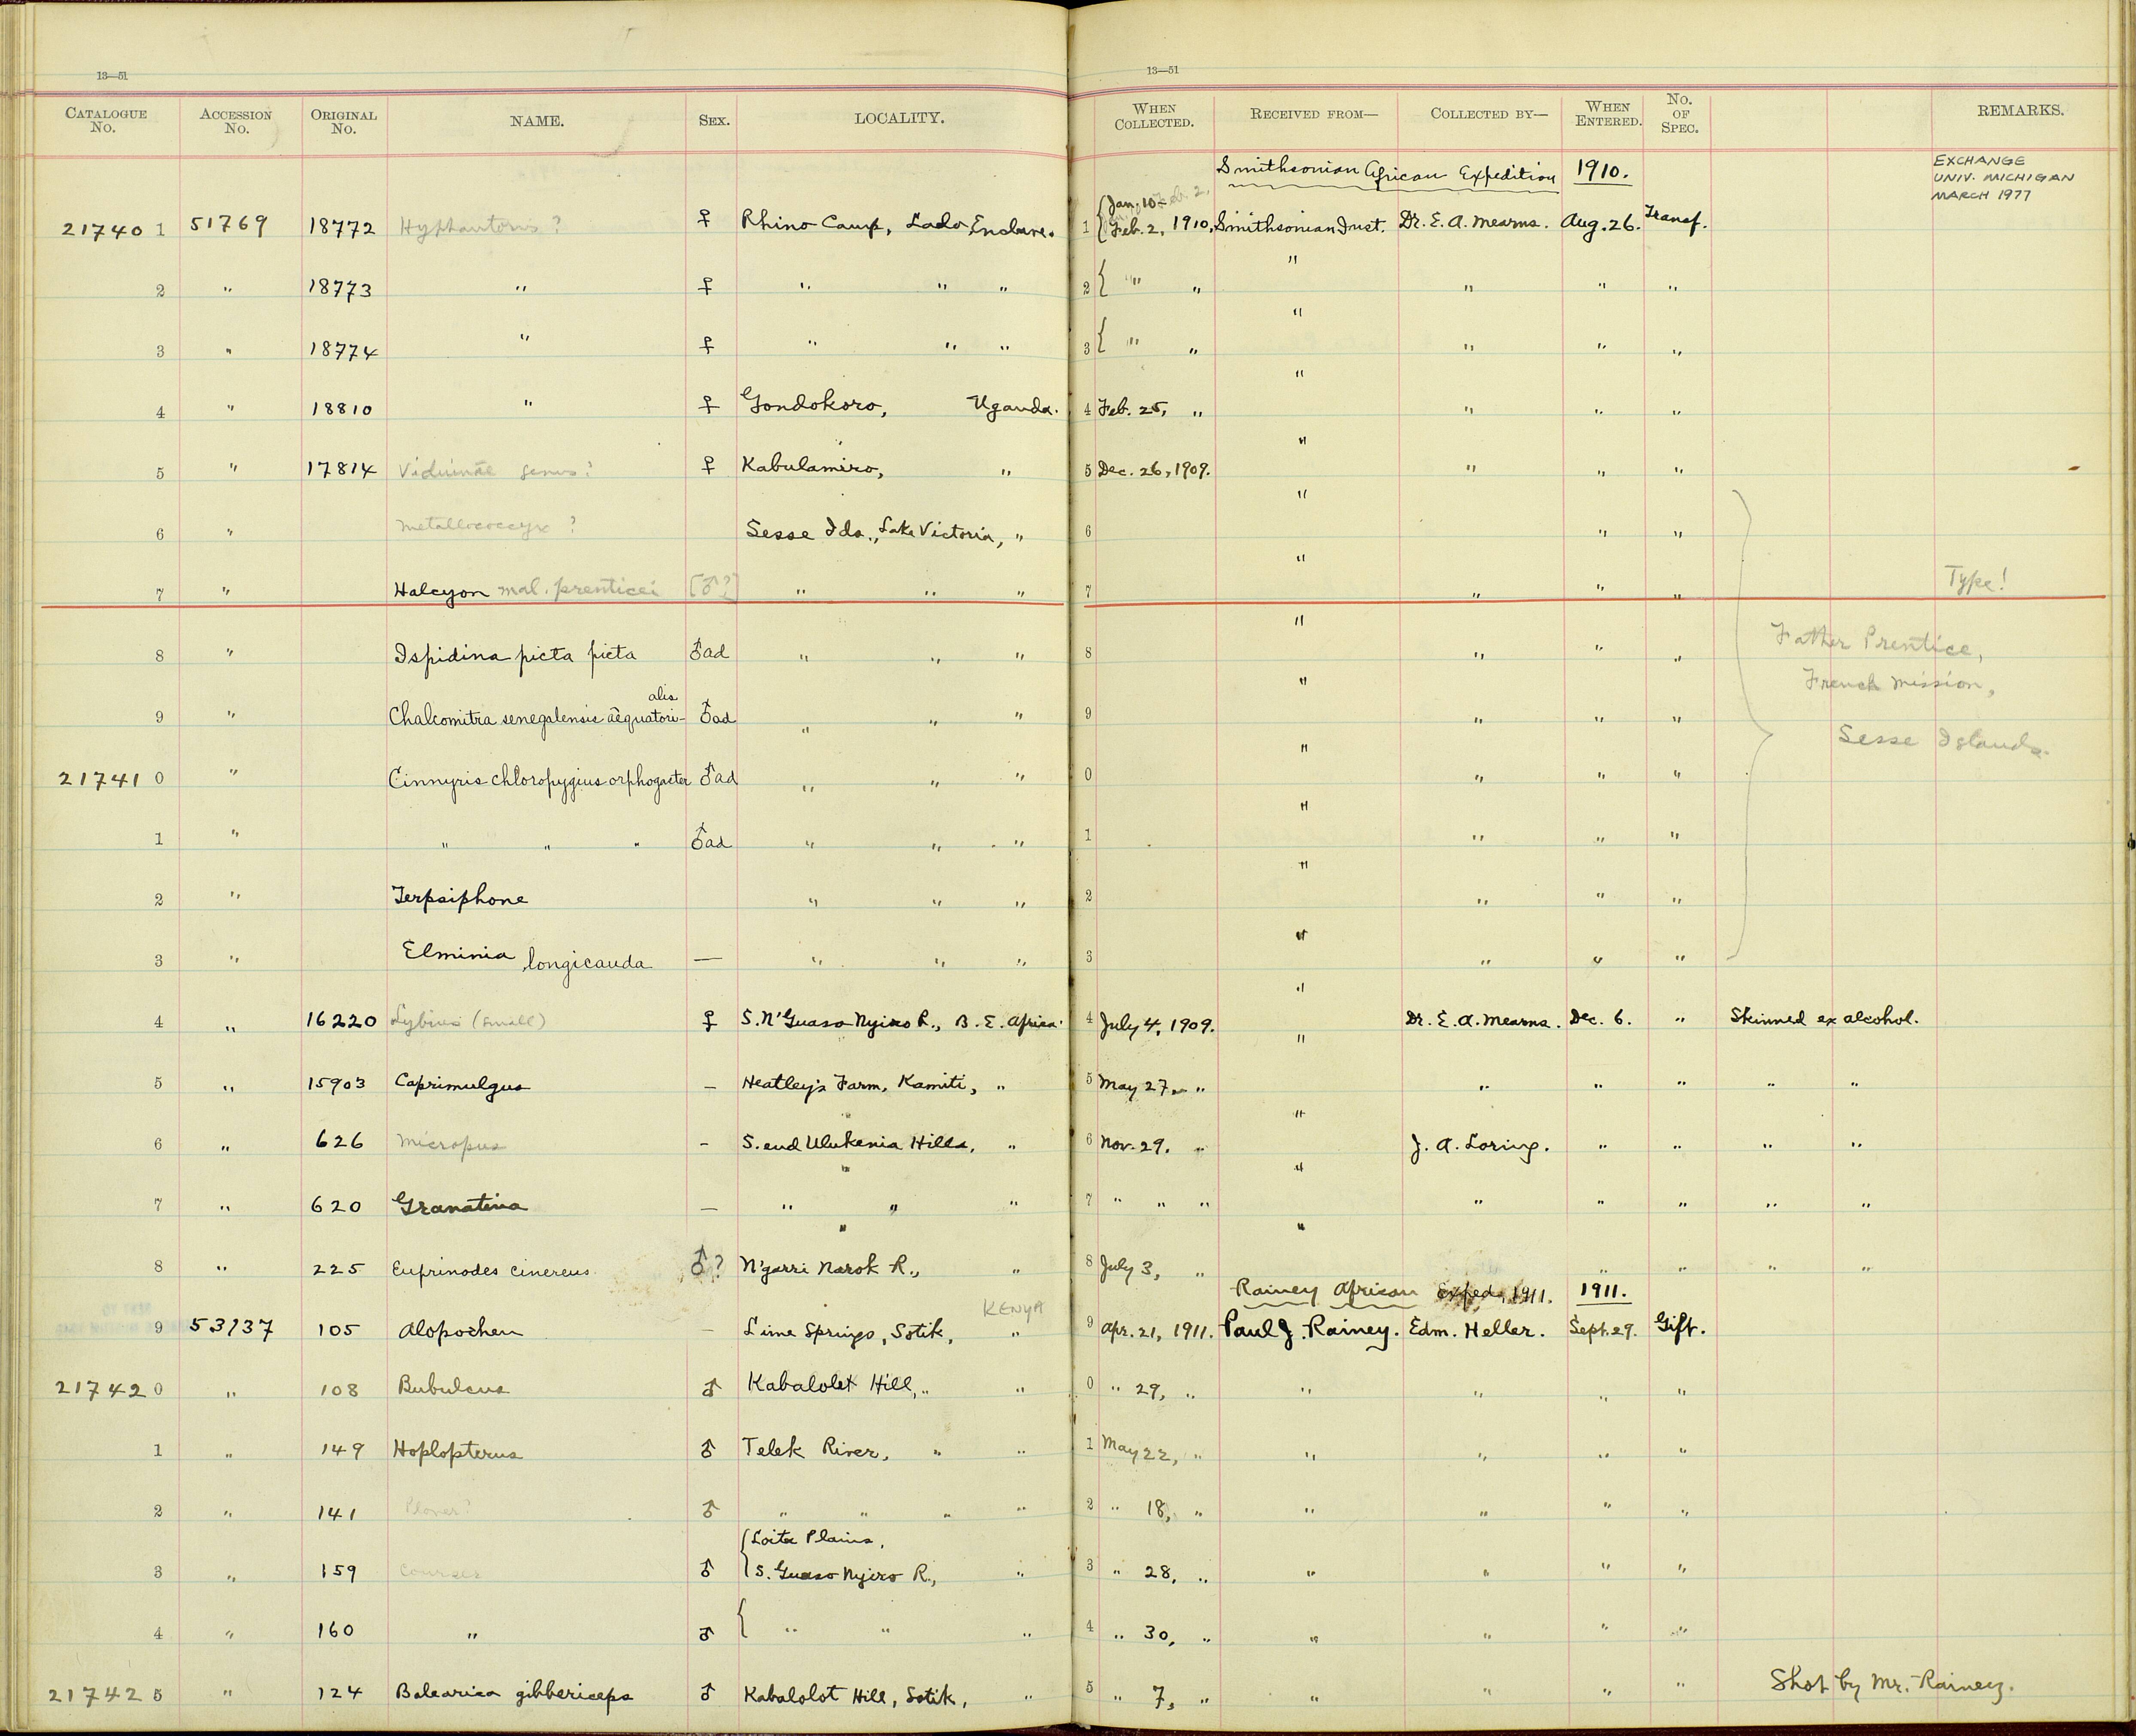 13—51
13—51
CATALOGUE No. ACCESSION No. ORIGINAL No. NAME. SEX. LOCALITY. WHEN COLLECTED. RECEIVED FROM— COLLECTED BY— WHEN ENTERED. No. OF SPEC. REMARKS.
Smithsonian African Expedition 1910.
EXCHANGE
UNIV. MICHIGAN
MARCH 1977
Jan. 10–
21740 1 51769 18772 Hyphantornis ? ♀ Rhino Camp, Lado Enclave. 1 Feb. 2, 1910. Smithsonian Inst. Dr. E. A. Mearns. Aug. 26. Transf.
2 " 18773 " ♀ " " " 2 " " " " " "
3 " 18774 " ♀ " " " 3 " " " " " "
4 " 18810 " ♀ Gondokoro, Uganda. 4 Feb. 25, " " " " "
5 " 17814 Viduinae genus? ♀ Kabulamiro, " 5 Dec. 26, 1909. " " " "
6 " Metallococcyx ? Sesse Ids., Lake Victoria, " 6 " " "
7 " Halcyon mal. prenticei [♂?] " " " 7 " " " " Type!
8 " Ispidina picta picta ♂ad " " " 8 " " " " Father Prentice,
French Mission,
9 " Chalcomitra senegalensis aequatorialis ♂ad " " " 9 " " " " Sesse Islands.
21741 0 " Cinnyris chloropygius orphogaster ♂ad " " " 0 " " " "
1 " " " " ♂ad " " " 1 " " " "
2 " Terpsiphone " " " 2 " " " "
3 " Elminia longicauda — " " " 3 " " " "
4 " 16220 Lybius (small) ♀ S. N'Guaso Nyiro R., B. E. Africa. 4 July 4, 1909. " Dr. E. A. Mearns. Dec. 6. " Skinned ex alcohol.
5 " 15903 Caprimulgus – Heatley's Farm, Kamiti, " 5 May 27, " " " " " " "
6 " 626 Micropus – S. end Ulukenia Hills, " 6 Nov. 29. " " J. A. Loring. " " " "
7 " 620 Granatina — " " " 7 " " " " " " " " "
8 " 225 Euprinodes cinereus ♂? N'garri Narok R., " 8 July 3, " " " " " "
Rainey African Exped. 1911. 1911.
KENYA
9 53137 105 Alopochen – Lime Springs, Sotik, " 9 Apr. 21, 1911. Paul J. Rainey. Edm. Heller. Sept. 29. Gift.
21742 0 " 108 Bubulcus ♂ Kabalolet Hill, " " 0 " 29, " " " " "
1 " 149 Hoplopterus ♂ Telek River, " " 1 May 22, " " " " "
2 " 141 Plover? ♂ " " " " 2 " 18, " " " " "
Loita Plains,
3 " 159 Courser ♂ S. Guaso Nyiro R., " 3 " 28, " " " " "
4 " 160 " ♂ " " " 4 " 30, " " " " "
21742 5 " 124 Balearica gibbericeps ♂ Kabalolot Hill, Sotik, " 5 " 7, " " " " " Shot by Mr. Rainey.